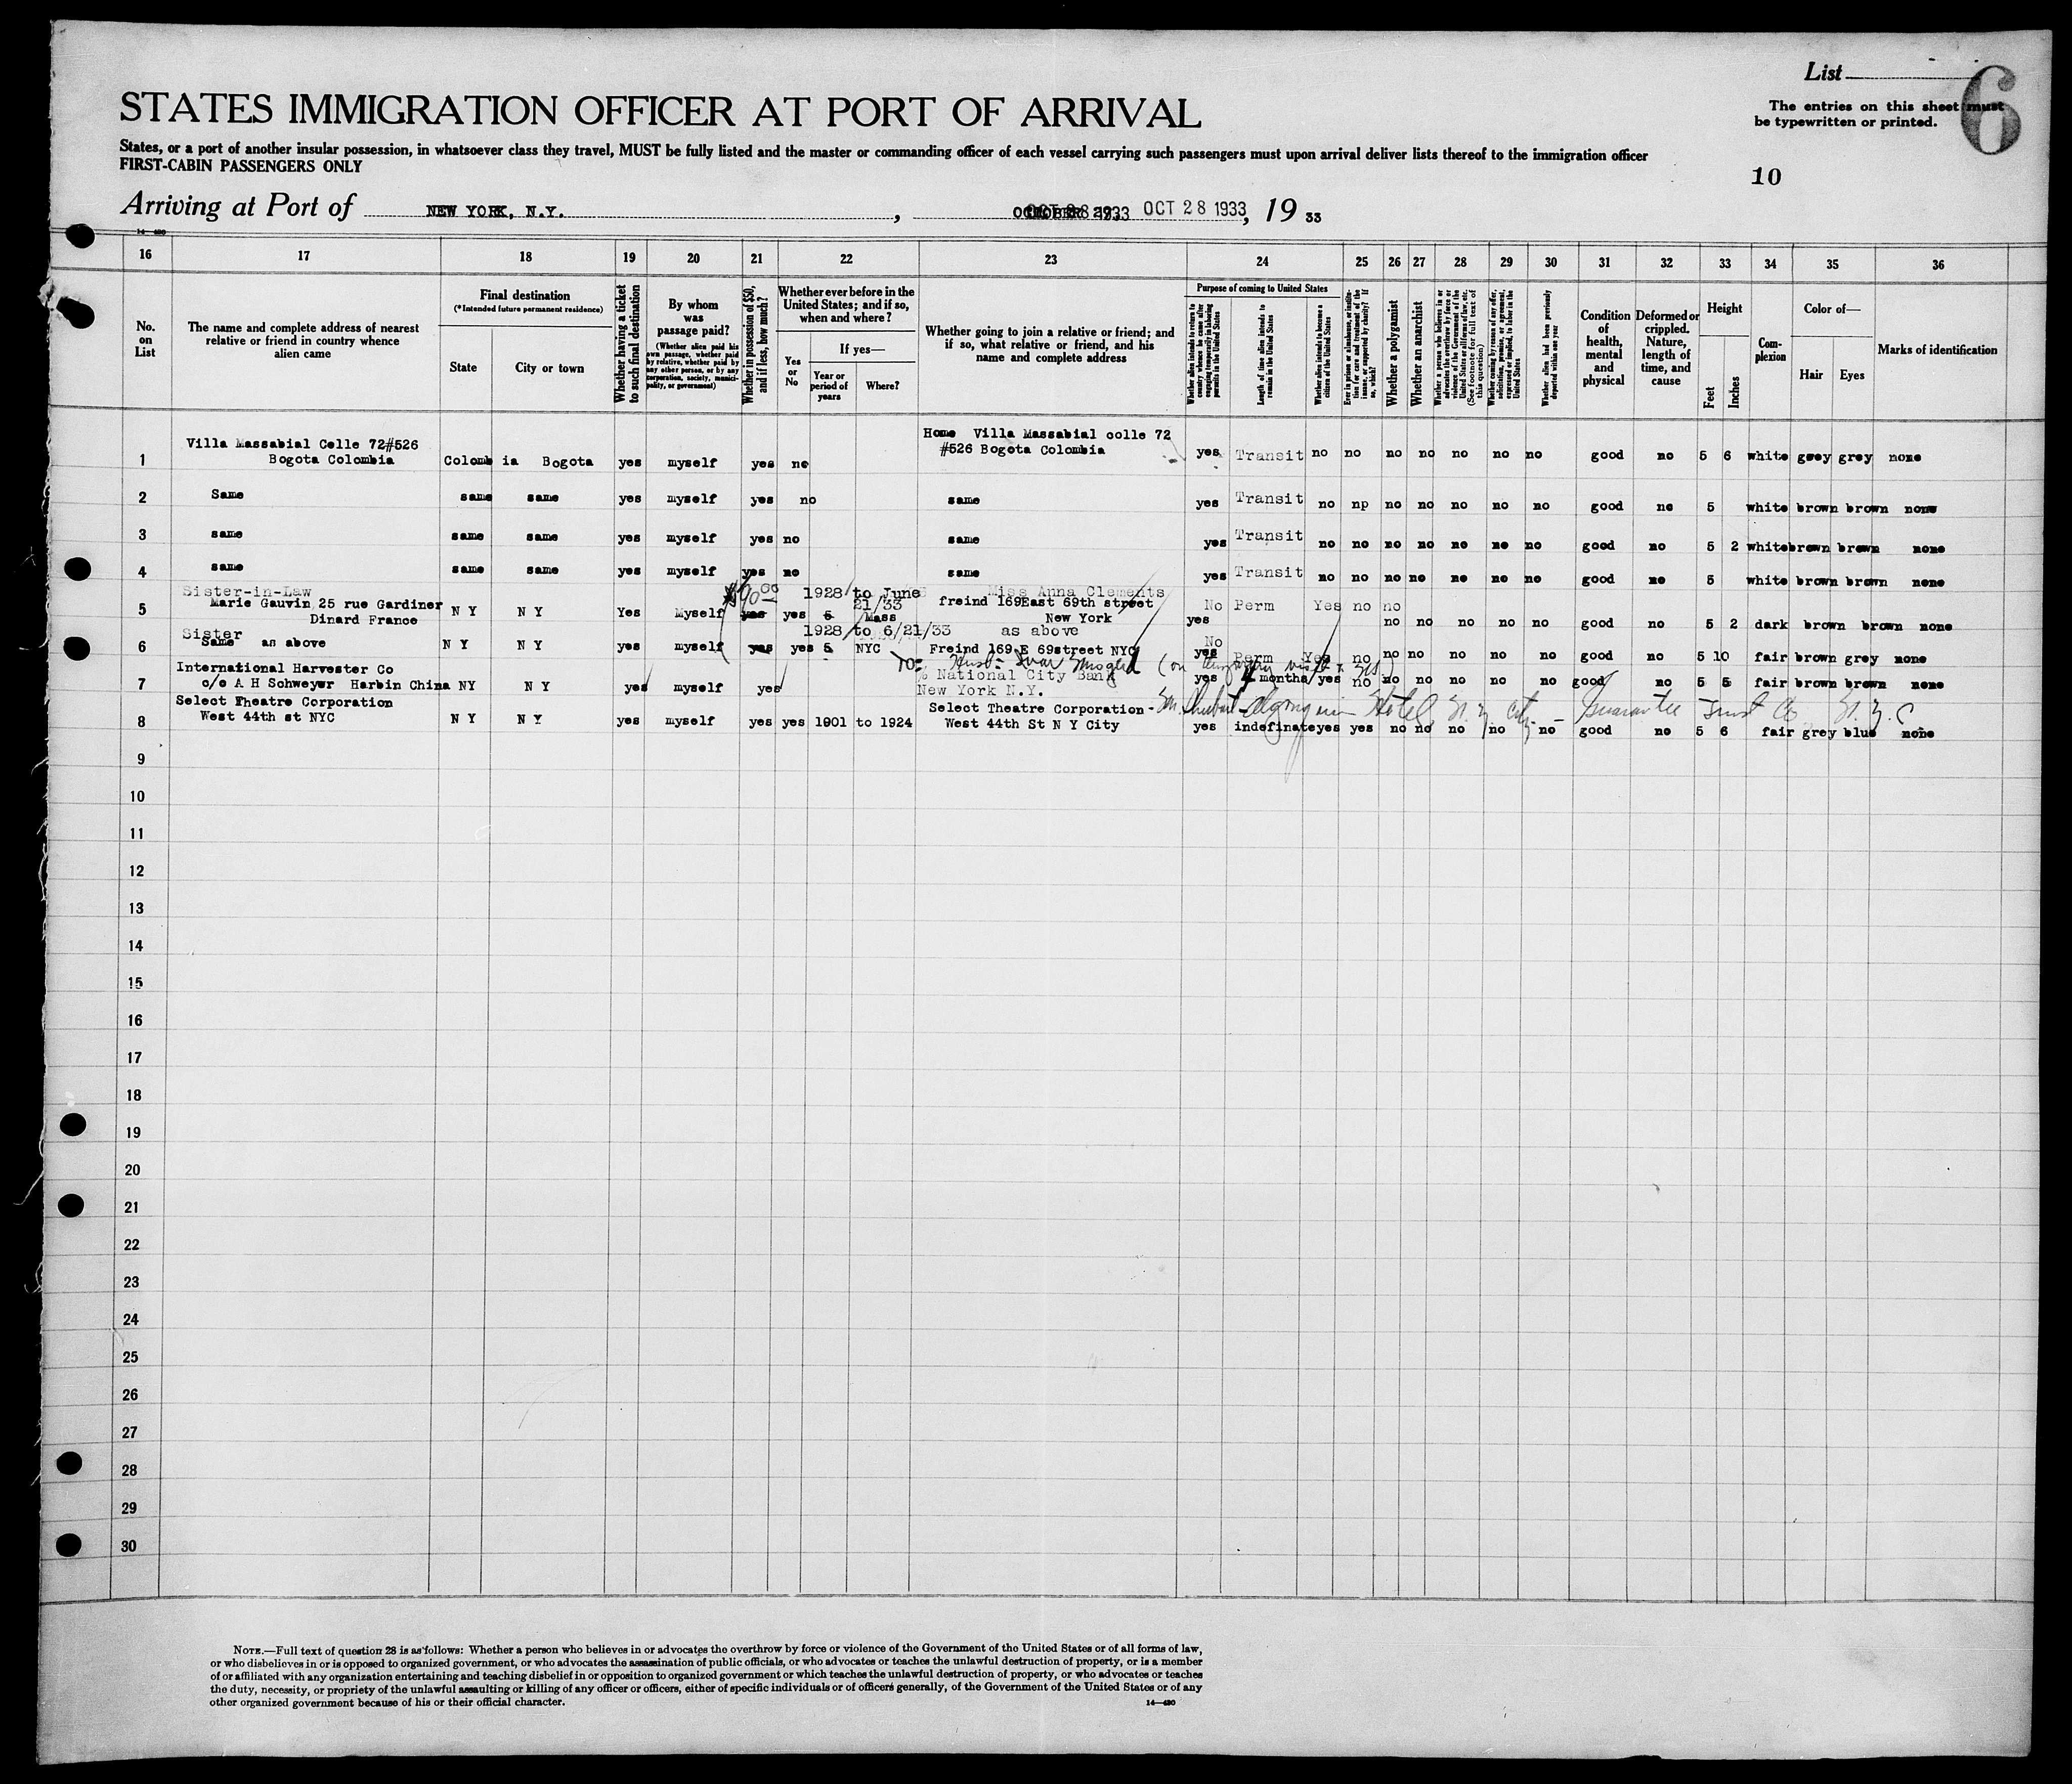 List
6
The entries on this sheet must
be typewritten or printed.
STATES IMMIGRATION OFFICER AT PORT OF ARRIVAL
States, or a port of another insular possession, in whatsoever class they travel, MUST be fully listed and the master or commanding officer of each vessel carrying such passengers must upon arrival deliver lists thereof to the immigration officer
FIRST-CABIN PASSENGERS ONLY
10
Arriving at Port of NEW YORK, N.Y. , OCT 28 1933, 19 33
14—480
16 17 18 19 20 21 22 23 24 25 26 27 28 29 30 31 32 33 34 35 36
No. on List
The name and complete address of nearest relative or friend in country whence alien came
Final destination
(*Intended future permanent residence)
State
City or town
Whether having a ticket to such final destination
By whom was passage paid?
(Whether alien paid his own passage, whether paid by relative, whether paid by any other person, or by any corporation, society, municipality, or government)
Whether in possession of $50, and if less, how much?
Whether ever before in the United States; and if so, when and where?
Yes or No
If yes—
Year or period of years
Where?
Whether going to join a relative or friend; and if so, what relative or friend, and his name and complete address
Purpose of coming to United States
Whether alien intends to return to country whence he came after engaging temporarily in laboring pursuits in the United States
Length of time alien intends to remain in the United States
Whether alien intends to become a citizen of the United States
Ever in prison or almshouse, or institution for care and treatment of the insane, or supported by charity? If so, which?
Whether a polygamist
Whether an anarchist
Whether a person who believes in or advocates the overthrow by force or violence of the Government of the United States or all forms of law, etc. (See footnote for full text of this question)
Whether coming by reason of any offer, solicitation, promise, or agreement, expressed or implied, to labor in the United States
Whether alien had been previously deported within one year
Condition of health, mental and physical
Deformed or crippled. Nature, length of time, and cause
Height
Feet
Inches
Complexion
Color of—
Hair
Eyes
Marks of identification
Villa Massabial Celle 72#526 Home Villa Massabial colle 72
1 Bogota Colombia Colombia Bogota yes myself yes no #526 Bogota Colombia yes Transit no no no no no no no good no 5 6 white grey grey none
2 Same same same yes myself yes no same yes Transit no np no no no no no good no 5 white brown brown none
3 same same same yes myself yes no same yes Transit no no no no no no no good no 5 2 white brown brown none
4 same same same yes myself yes no same yes Transit no no no no no no no good no 5 white brown brown none
Sister-in-Law $90.00 1928 to June Miss Anna Clements
5 Marie Gauvin 25 rue Gardiner N Y N Y Yes Myself yes yes 5 21/33 Mass freind 169East 69th street No Perm Yes no no
Dinard France New York yes no no no no no good no 5 2 dark brown brown none
Sister 1928 to 6/21/33 as above No
6 Same as above N Y N Y yes myself yes yes 5 NYC Freind 169 E 69street NYC yes Perm Yes no no no no no no good no 5 10 fair brown grey none
International Harvester Co to: Husb:
% National City Bank
7 c/o A H Schweyer Harbin China NY N Y yes myself yes New York N.Y. yes months yes no no no no no no good no 5 5 fair brown brown none
Select Theatre Corporation Select Theatre Corporation - Hotel N.Y. City - Guarantee Trust Co N.Y.C
8 West 44th st NYC N Y N Y yes myself yes yes 1901 to 1924 West 44th St N Y City yes indefinate yes yes no no no no no good no 5 6 fair grey blue none
9
10
11
12
13
14
15
16
17
18
19
20
21
22
23
24
25
26
27
28
29
30
NOTE.—Full text of question 28 is as follows: Whether a person who believes in or advocates the overthrow by force or violence of the Government of the United States or of all forms of law,
or who disbelieves in or is opposed to organized government, or who advocates the assassination of public officials, or who advocates or teaches the unlawful destruction of property, or is a member
of or affiliated with any organization entertaining and teaching disbelief in or opposition to organized government or which teaches the unlawful destruction of property, or who advocates or teaches
the duty, necessity, or propriety of the unlawful assaulting or killing of any officer or officers, either of specific individuals or of officers generally, of the Government of the United States or of any
other organized government because of his or their official character.
14—480